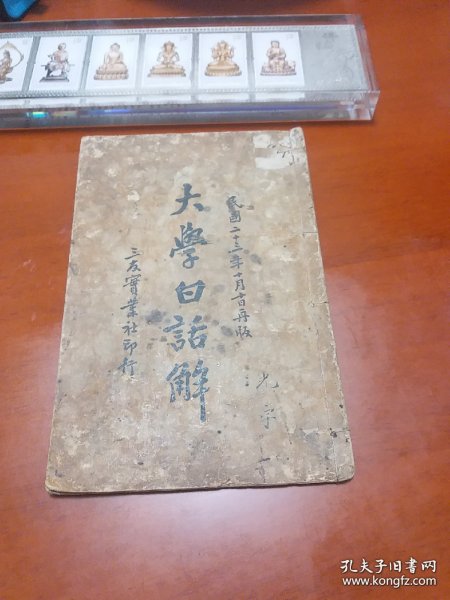 民國二十三年十月十日再版
大學白話解
三友實業社印行
孔夫子旧书网
www.kongfz.com